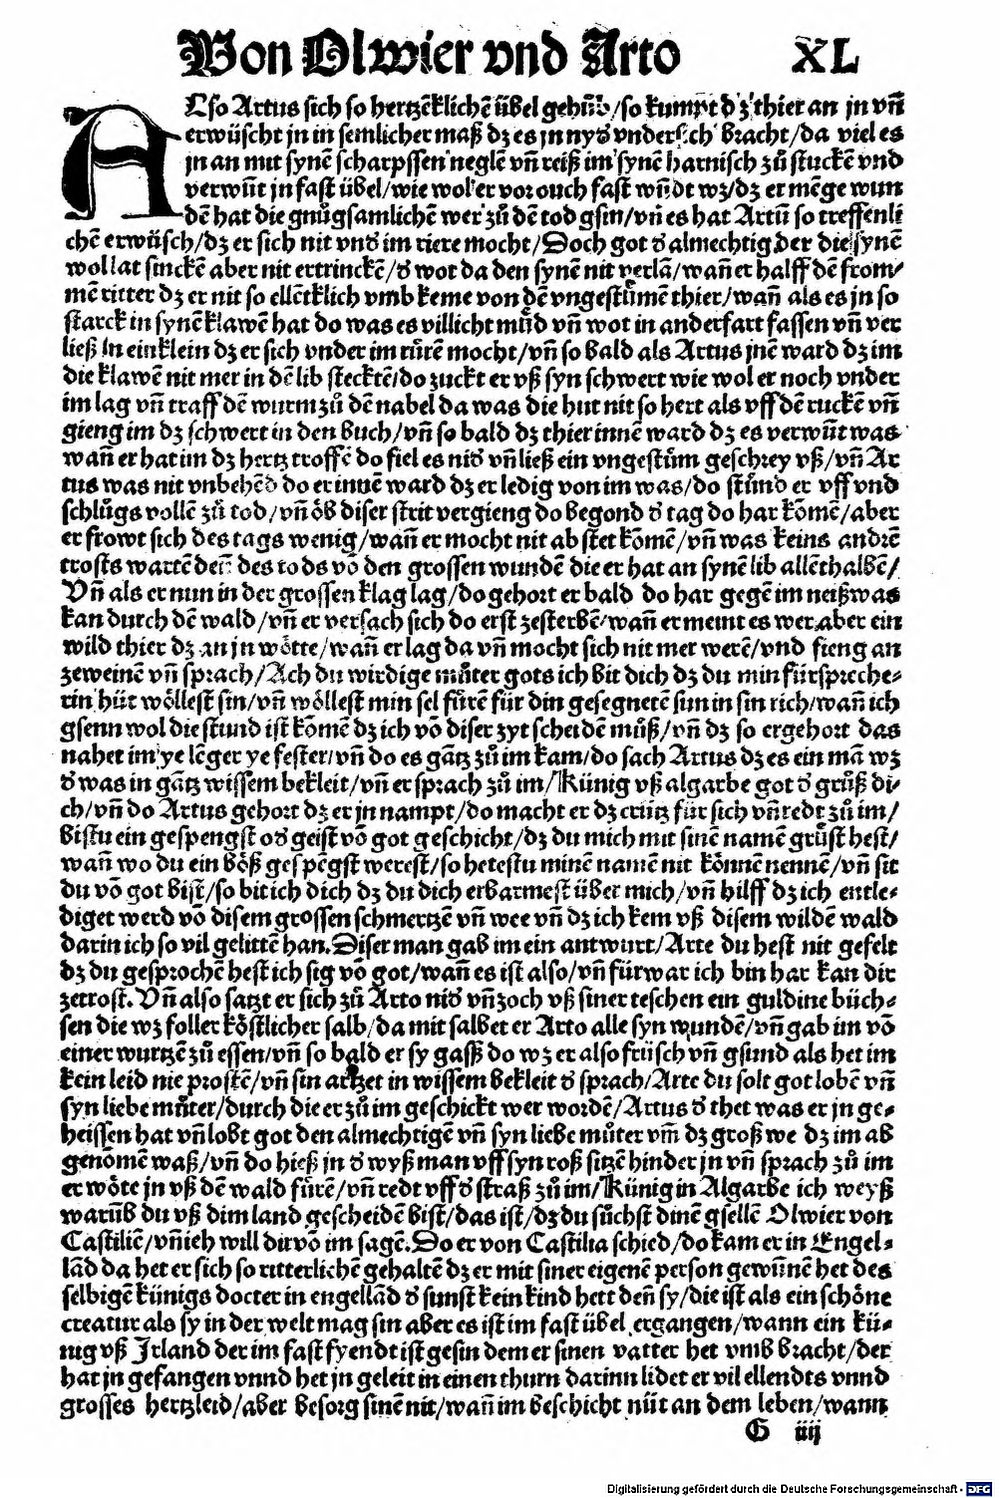 Von Olwier vnd Arto XL
ALso Artus sich so hertzēklichē übel gehůb/so kumpt dz thier an jn vn̄
erwüscht jn in semlicher maß dz es jn nyd vnder sich bracht/da viel es
jn an mit synē scharpffen neglē vn̄ reiß im synē harnisch zů stuckē vnd
verwūt jn fast übel/wie wol er vor ouch fast wūdt wz/dz er mēge wun
dē hat die gnůgsamlichē wer zů dē tod gsin/vn̄ es hat Artū so treffenli
chē erwüsch/dz er sich nit vnd im riere mocht/Doch got d almechtig der die synē
wol lat sinckē aber nit ertrinckē/d wot da den synē nit verlā/wan̄ er halff dē from/
mē ritter dz er nit so ellētklich vmb keme von dē vngestůmē thier/wan̄ als es jn so
starck in synē klawē hat do was es villicht mūd vn̄ wot in anderfart fassen vn̄ ver
ließ jn ein klein dz er sich vnder im rūrē mocht/vn̄ so bald als Artus jnē ward dz im
die klawē nit mer in dē lib stecktē/do zuckt er vß syn schwert wie wol er noch vnder
im lag vn̄ traff dē wurm zů dē nabel da was die hut nit so hert als vff dē ruckē vn̄
gieng im dz schwert in den buch/vn̄ so bald dz thier innē ward dz es verwūt was
wan̄ er hat im dz hertz troffē do fiel es nid vn̄ ließ ein vngestům geschrey vß/vn̄ Ar
tus was nit vnbehēd do er innē ward dz er ledig von im was/do stůnd er vff vnd
schlůgs vollē zů tod/vn̄ ōb diser strit vergieng do begond d tag do har kōmē/aber
er frowt sich des tags wenig/wan̄ er mocht nit ab stet kōmē/vn̄ was keins andrē
trosts wartē den̄ des tods vō den grossen wundē die er hat an synē lib allēthalbē/
Vn̄ als er nun in der grossen klag lag/do gehort er bald do har gegē im neißwas
kan durch dē wald/vn̄ er versach sich do erst zesterbē/wan̄ er meint es wer aber ein
wild thier dz an jn wōtte/wan̄ er lag da vn̄ mocht sich nit mer werē/vnd fieng an
zeweinē vn̄ sprach/Ach du wirdige můter gots ich bit dich dz du min fürspreche⸗
rin hüt wöllest sin/vn̄ wöllest min sel fūrē für din gesegnetē sun in sin rich/wan̄ ich
gsenn wol die stund ist kōmē dz ich vō diser zyt scheidē můß/vn̄ dz so ergehort das
nahet im ye lēger ye fester/vn̄ do es gātz zů im kam/do sach Artus dz es ein mā wz
d was in gātz wissem bekleit/vn̄ er sprach zů im/Künig vß algarbe got d grůß di⸗
ch/vn̄ do Artus gehort dz er jn nampt/do macht er dz crütz für sich vn̄ redt zů im/
bistu ein gespengst od geist vō got geschicht/dz du mich mit sinē namē grůst hest/
wan̄ wo du ein böß gespēgst werest/so hetestu minē namē nit könnē nennē/vn̄ sit
du vō got bist/so bit ich dich dz du dich erbarmest über mich/vn̄ hilff dz ich entle⸗
diget werd vō disem grossen schmertzē vn̄ wee vn̄ dz ich kem vß disem wildē wald
darin ich so vil gelittē han. Diser man gab im ein antwurt/Arte du hest nit gefelt
dz du gesprochē hest ich sig vō got/wan̄ es ist also/vn̄ fürwar ich bin har kan dir
zetrost. Vn̄ also satzt er sich zů Arto nid vn̄ zoch vß siner teschen ein guldine büch⸗
sen die wz foller köstlicher salb/da mit salbet er Arto alle syn wundē/vn̄ gab im vō
einer wurtzē zů essen/vn̄ so bald er sy gasß do wz er also früsch vn̄ gsund als het im
kein leid nie prostē/vn̄ sin artzet in wissem bekleit d sprach/Arte du solt got lobē vn̄
syn liebe můter/durch die er zů im geschickt wer wordē/Artus d thet was er jn ge⸗
heissen hat vn̄ lobt got den almechtigē vn̄ syn liebe můter vm̄ dz groß we dz im ab
genōmē waß/vn̄ do hieß jn d wyß man vff syn roß sitzē hinder jn vn̄ sprach zů im
er wōte jn vß dē wald fūrē/vn̄ redt vff d straß zů im/Künig in Algarbe ich weyß
warūb du vß dim land gescheidē bist/das ist/dz du sůchst dinē gsellē Olwier von
Castiliē/vn̄ ich will dir vō im sagē. Do er von Castilia schied/do kam er in Engel⸗
lād da het er sich so ritterlichē gehaltē dz er mit siner eigenē person gewūnē het des
selbigē künigs docter in engellād d sunst kein kind hett den̄ sy/die ist als ein schöne
creatur als sy in der welt mag sin aber es ist im fast übel ergangen/wann ein kü⸗
nig vß Irland der im fast fyendt ist gesin dem er sinen vatter het vmb bracht/der
hat jn gefangen vnnd het jn geleit in einen thurn darinn lidet er vil ellendts vnnd
grosses hertzleid/aber besorg sinē nit/wan̄ im beschicht nüt an dem leben/wann
G iiij
Digitalisierung gefördert durch die Deutsche Forschungsgemeinschaft - DFG